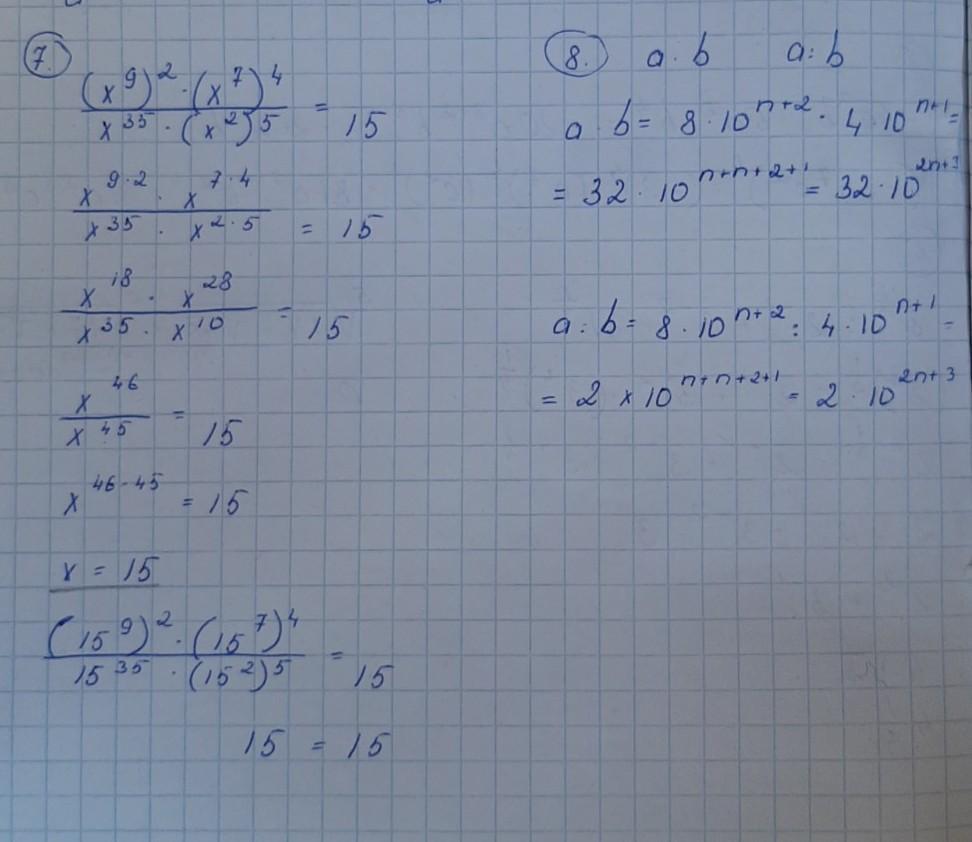 7.
(x^9)^2 · (x^7)^4 / x^35 · (x^2)^5 = 15
x^9·2 · x^7·4 / x^35 · x^2·5 = 15
x^18 · x^28 / x^35 · x^10 = 15
x^46 / x^45 = 15
x^46-45 = 15
x = 15
(15^9)^2 · (15^7)^4 / 15^35 · (15^2)^5 = 15
15 = 15
8. a · b a : b
a b = 8 · 10^n+2 · 4 · 10^n+1 =
= 32 · 10^n+n+2+1 = 32 · 10^2n+3
a : b = 8 · 10^n+2 : 4 · 10^n+1 =
= 2 x 10^n+n+2+1 = 2 · 10^2n+3